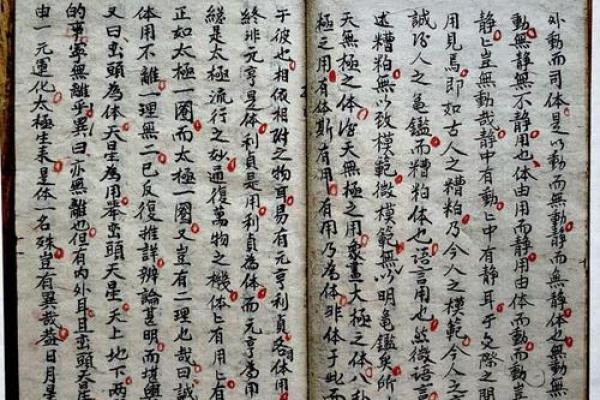 外動而司体是以動而無動靜而無靜体也無動無
動無靜無不靜用也体由用而靜用由体而動而動豈
靜靜豈無動哉靜中有動動中有靜耳乎交際之間
用見焉即如古人之糟粕乃今人之模範今人之言
誠後人之龜鑑而糟粕体也語言用也然微語言
述糟粕無以致模範微模範無以明龜鑑矣所
天無極之体後天無極之用象畫大極之体八卦
極之用有体斯有用有用乃為体非体于此而
于彼也相依相附之物耳易有元亨利貞各体用
終非元亨是体利貞是用利貞為体而元亨為用
總是太極流行之妙通復萬物之機体上有用上有
正如太極一圈而太極一圈又豈有二理也哉曰誠
体用不離一理無二已反復推詳辨論甚明而堪輿
又曰巒頭為体天星為用舉巒頭天星天上地下两
的事寧無離乎異曰亦無離也但有内外耳且巒頭天星
由一元運化太極生来是体一名殊豈有異哉盖日月星